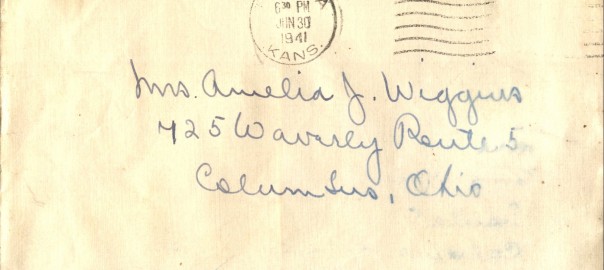 A
6 30 PM
JUN 30
1941
KANS.
Mrs. Amelia J. Wiggins
725 Waverly Route 5
Columbus, Ohio